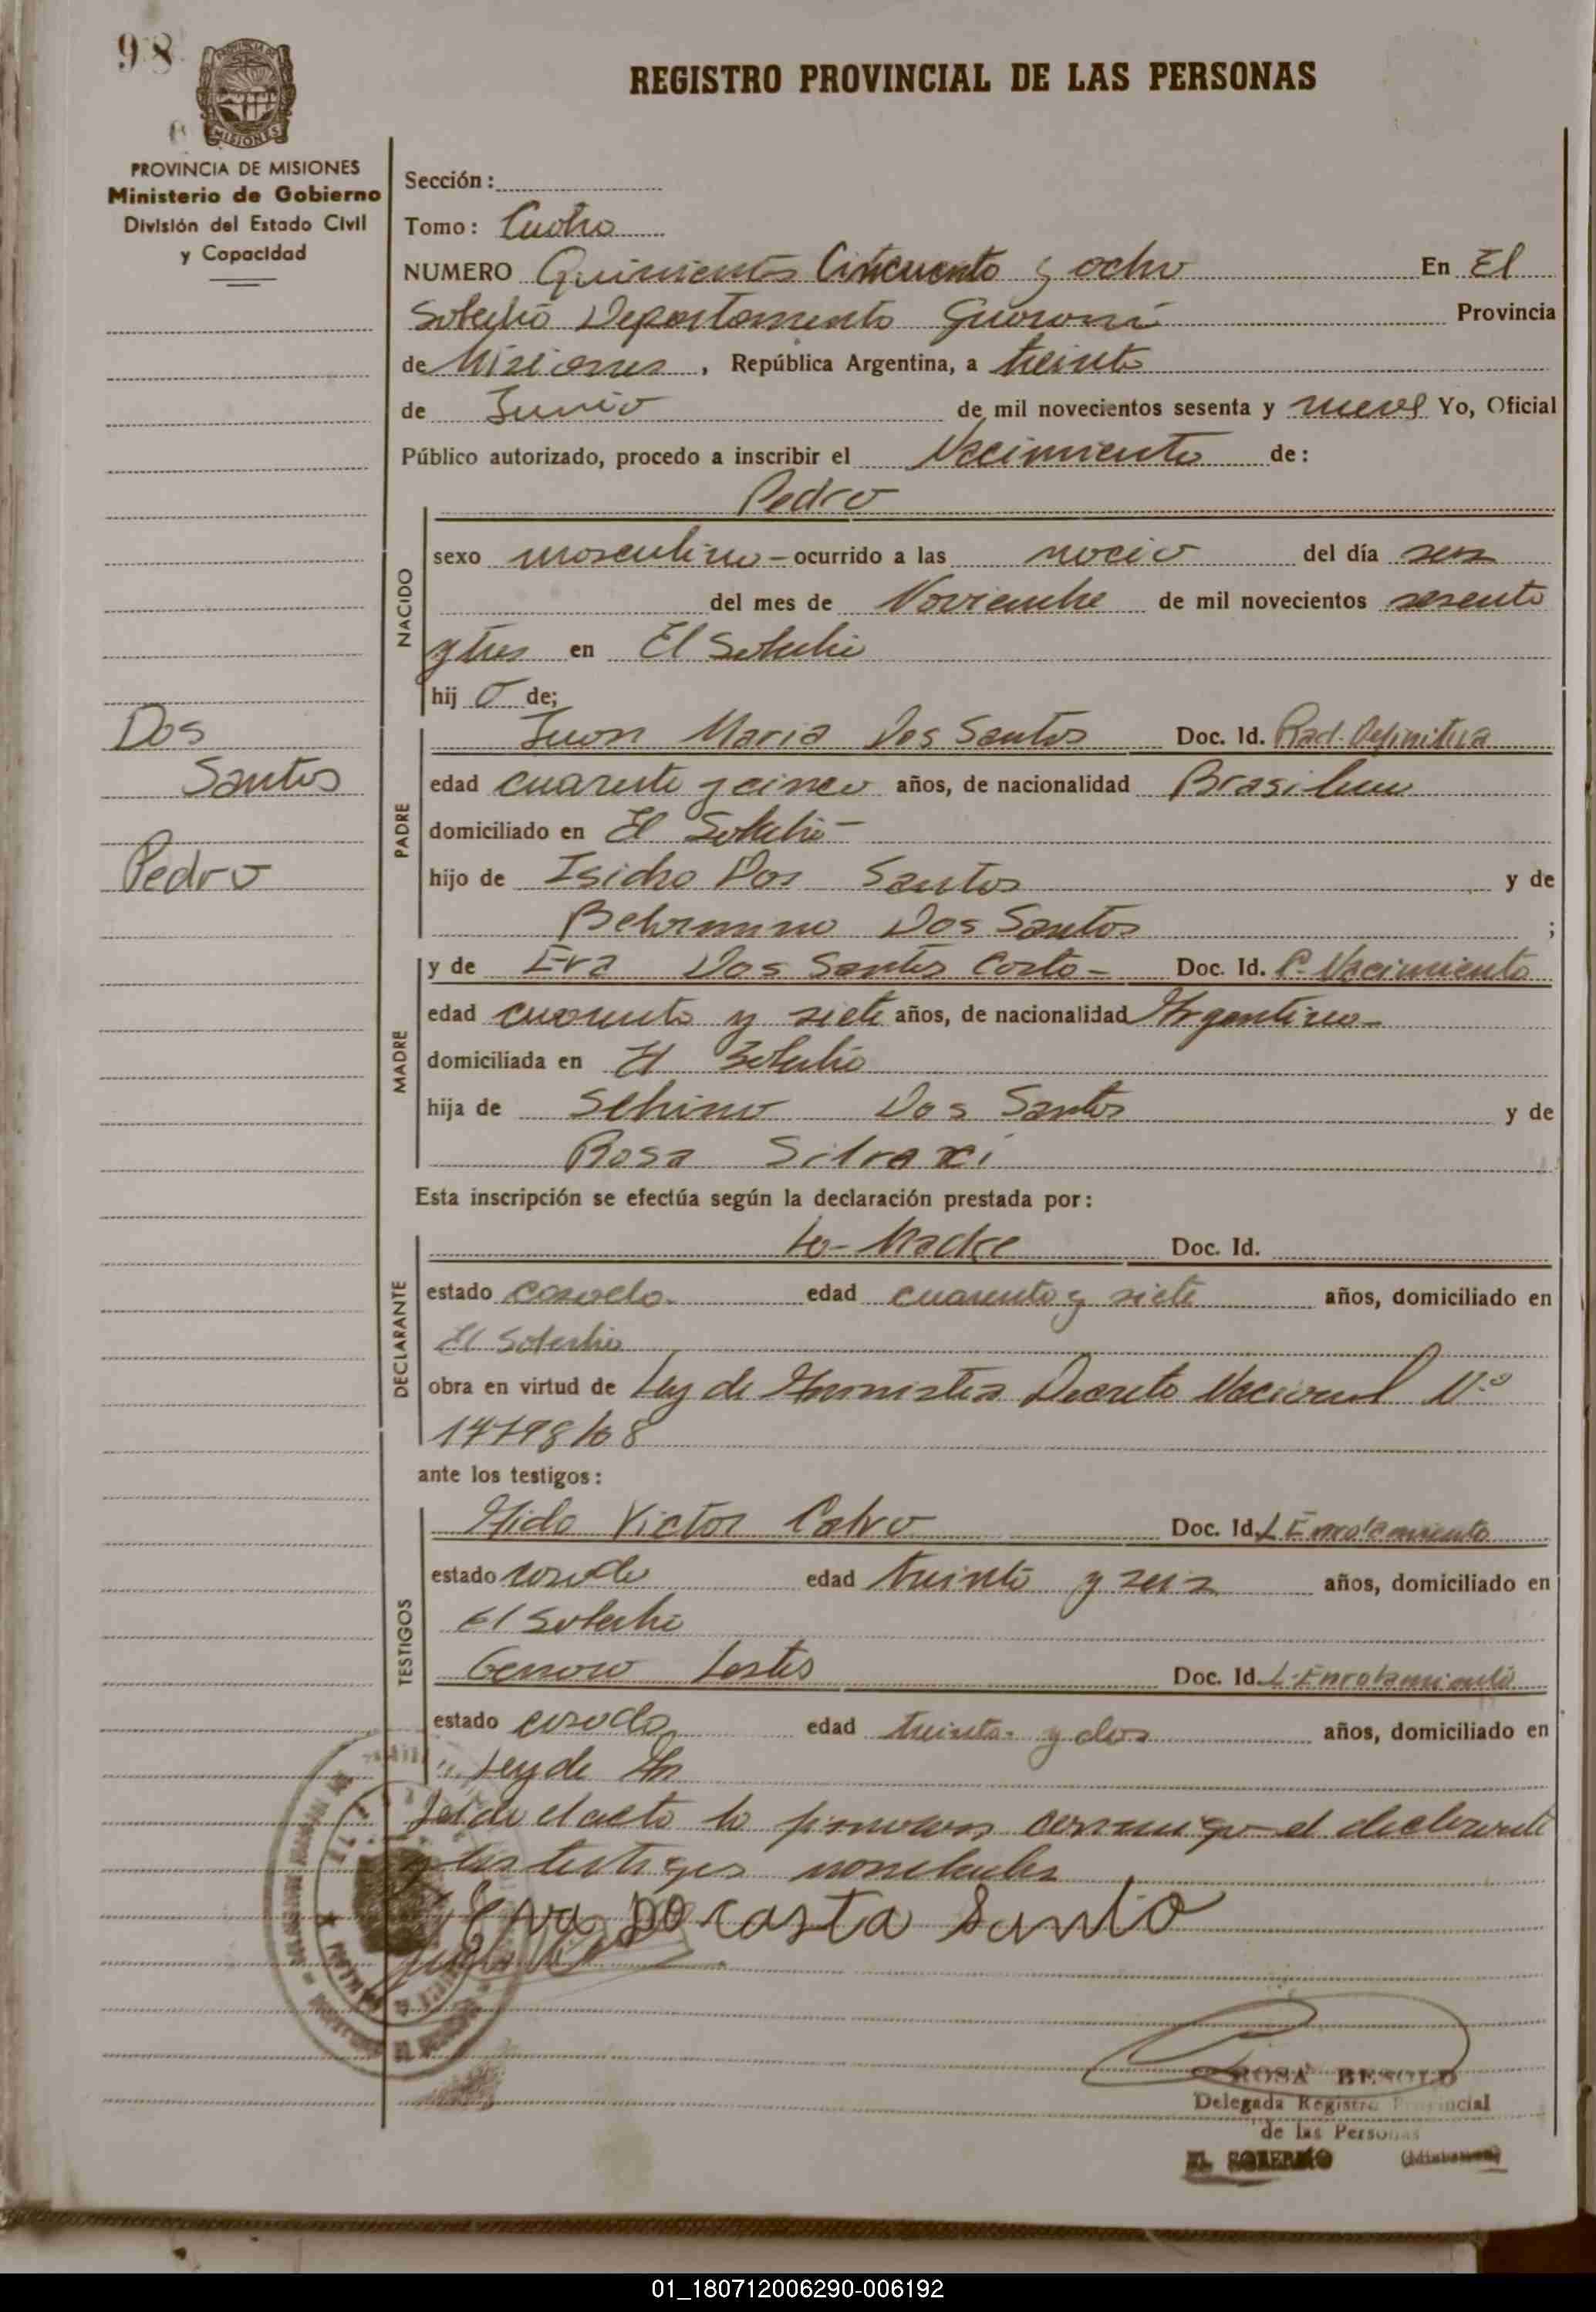 98
PROVINCIA DE MISIONES
Ministerio de Gobierno
División del Estado Civil
y Capacidad
REGISTRO PROVINCIAL DE LAS PERSONAS
Sección:
Tomo: Cuatro
NUMERO Quinientos Cincuenta y ocho En El
Soberbio Departamento Guarani Provincia
de Misiones, República Argentina, a treinta
de Junio de mil novecientos sesenta y nueve Yo, Oficial
Público autorizado, procedo a inscribir el Nacimiento de:
Pedro
NACIDO
sexo masculino - ocurrido a las del día seis
del mes de Noviembre de mil novecientos sesenta
y tres en El Soberbio
hij o de;
Dos
Santos
Pedro
PADRE
Juan Maria Dos Santos Doc. Id. Rad. Definitiva
edad cuarenta y cinco años, de nacionalidad Brasilero
domiciliado en El Soberbio -
hijo de Isidro Dos Santos y de
Dos Santos ;
MADRE
y de Eva Dos Santos Costa - Doc. Id. P. Nacimiento
edad cuarenta y siete años, de nacionalidad Argentina -
domiciliada en El Soberbio
hija de Dos Santos y de
Rosa
Esta inscripción se efectúa según la declaración prestada por:
DECLARANTE
La - Madre Doc. Id.
estado casada edad cuarenta y siete años, domiciliado en
El Soberbio
obra en virtud de Ley de Amnistia Decreto Nacional Nº
ante los testigos:
TESTIGOS
Victor Calvo Doc. Id. L Enrolamiento
estado casado edad treinta y seis años, domiciliado en
El Soberbio
Genaro Doc. Id. L. Enrolamiento
estado casado edad treinta y dos años, domiciliado en
Ley de Am
Leida el acta la firmaron conmigo el declarante
y los testigos nombrados
Eva do casta Santo
ROSA BESOLD
Delegada Registro Provincial
de las Personas
EL SOBERBIO (Misiones)
01_180712006290-006192